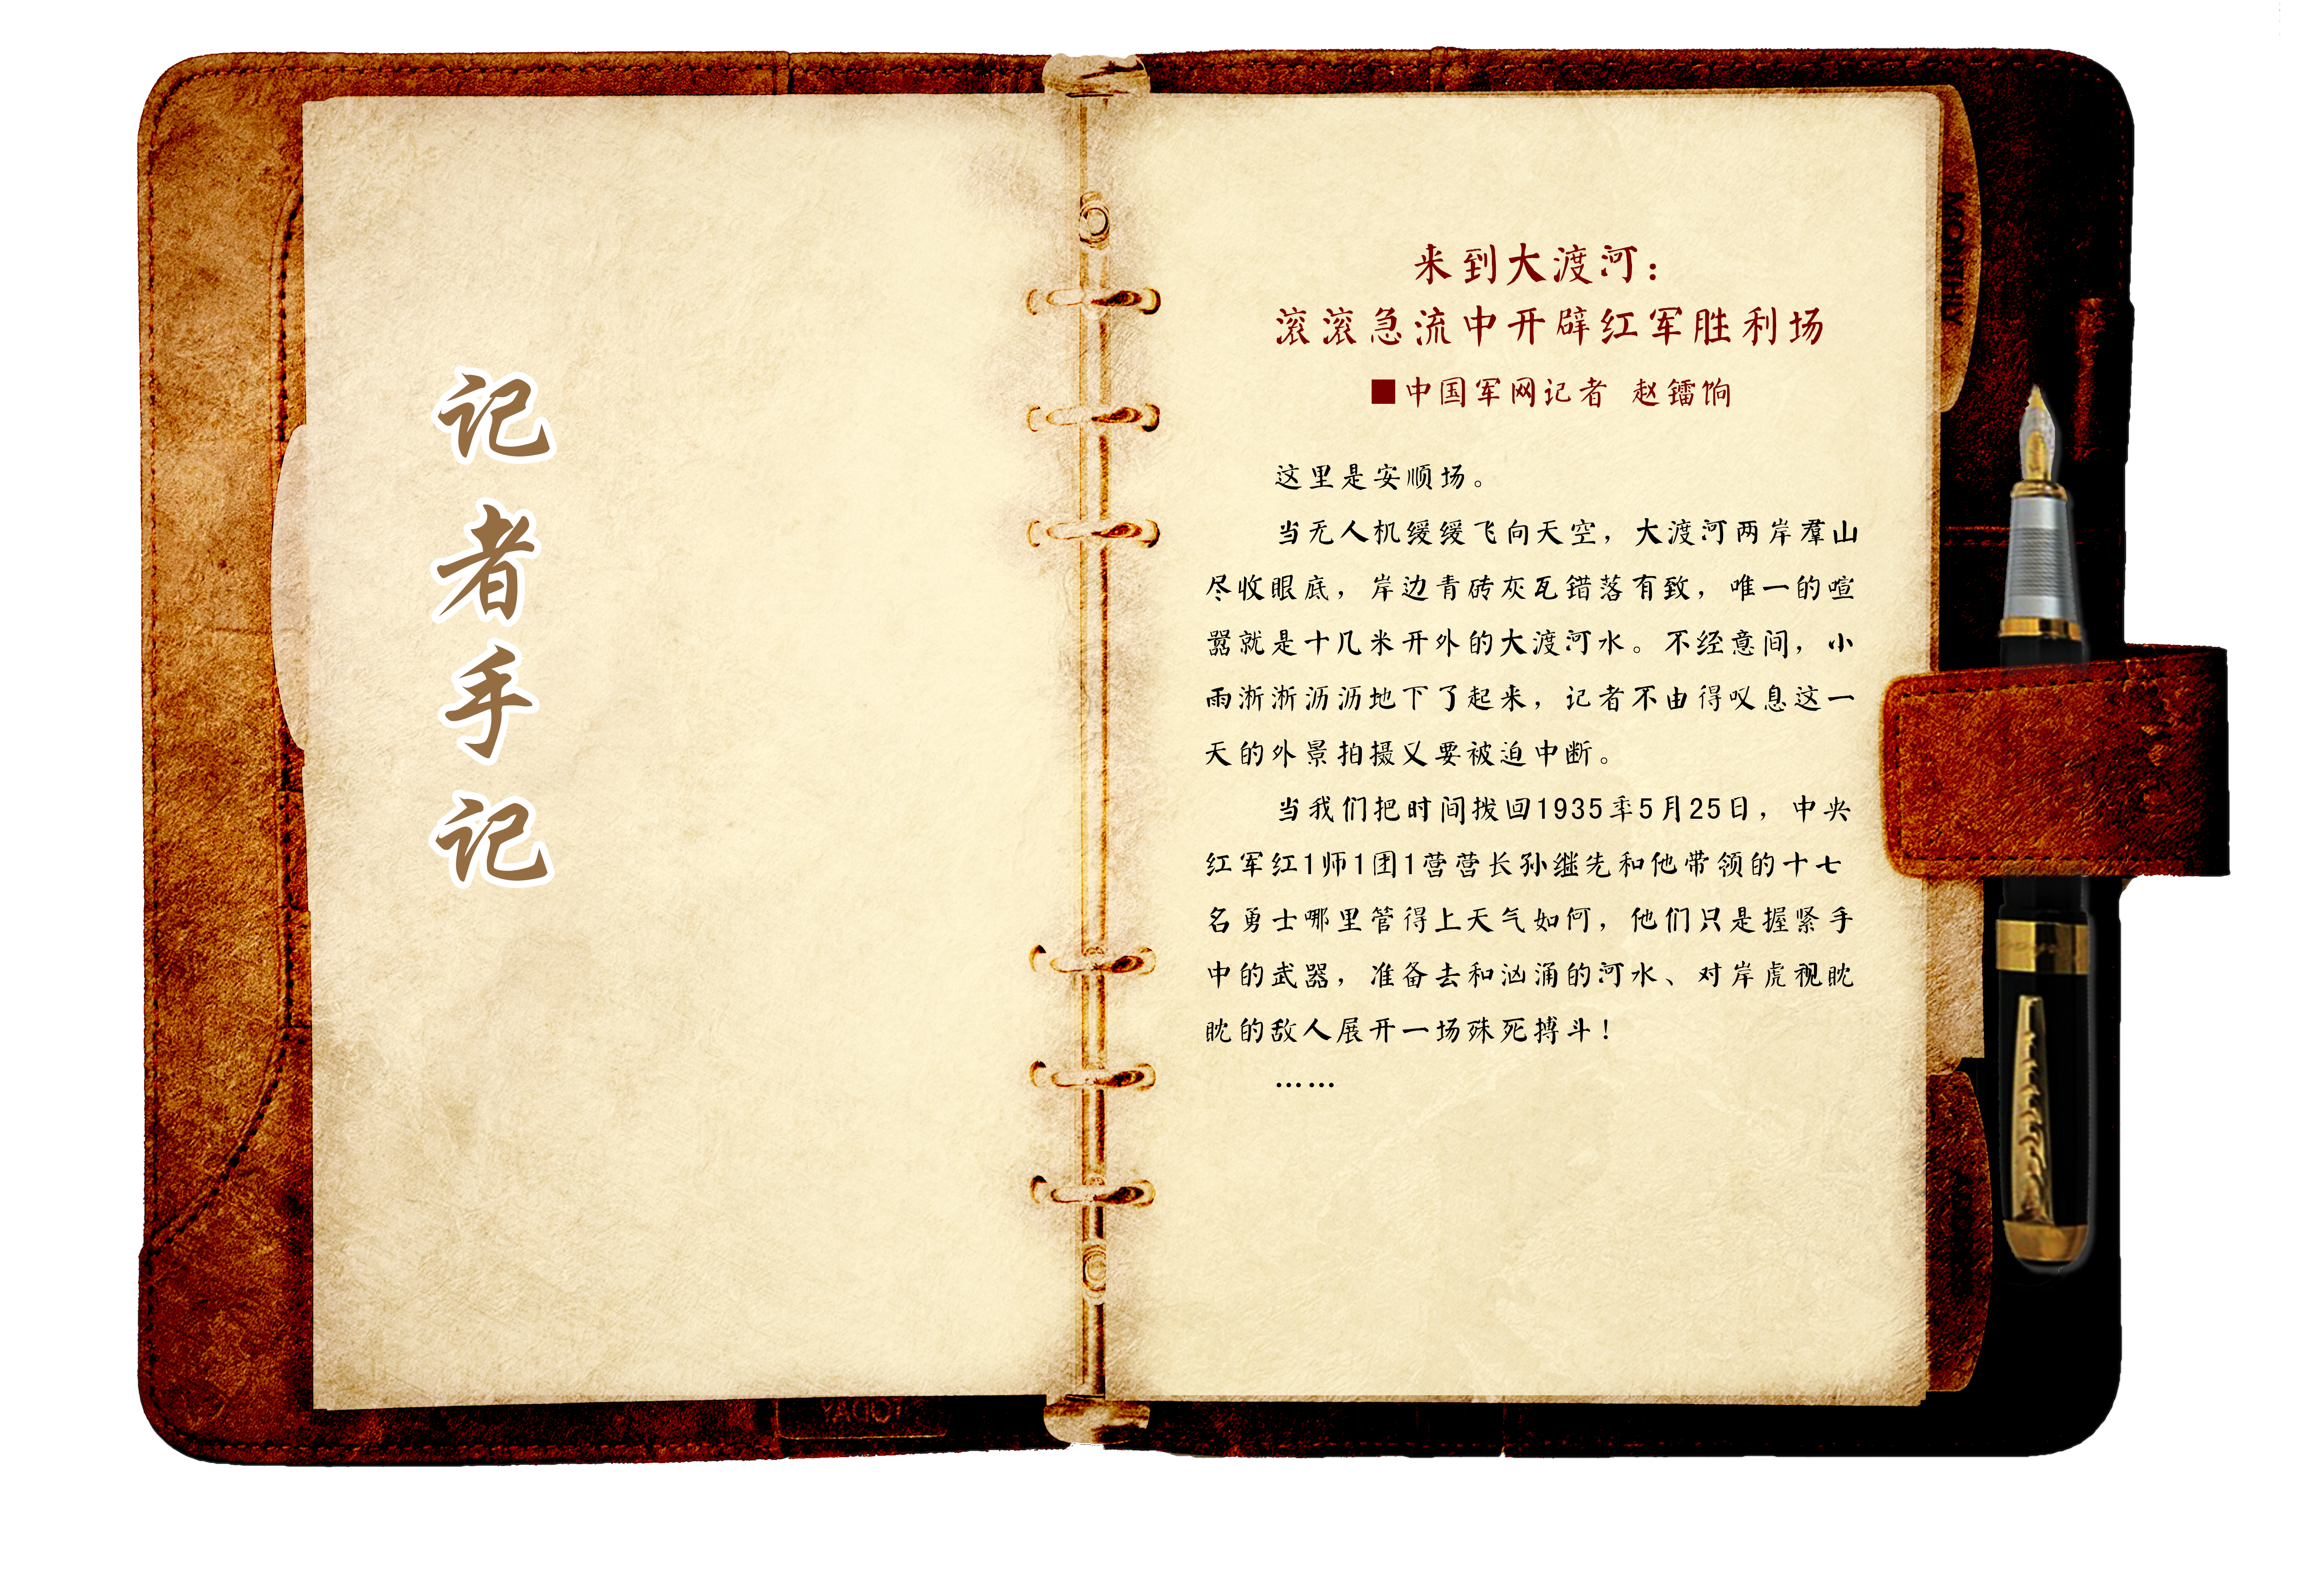 记者手记
来到大渡河：
滚滚急流中开辟红军胜利场
■中国军网记者 赵镭饷
这里是安顺场。
当无人机缓缓飞向天空，大渡河两岸羣山
尽收眼底，岸边青砖灰瓦错落有致，唯一的喧
嚣就是十几米开外的大渡河水。不经意间，小
雨淅淅沥沥地下了起来，记者不由得叹息这一
天的外景拍摄又要被迫中断。
当我们把时间拨回1935年5月25日，中央
红军红1师1团1营营长孙继先和他带领的十七
名勇士哪里管得上天气如何，他们只是握紧手
中的武器，准备去和汹涌的河水、对岸虎视眈
眈的敌人展开一场殊死搏斗！
……
MONTHLY
TODAY